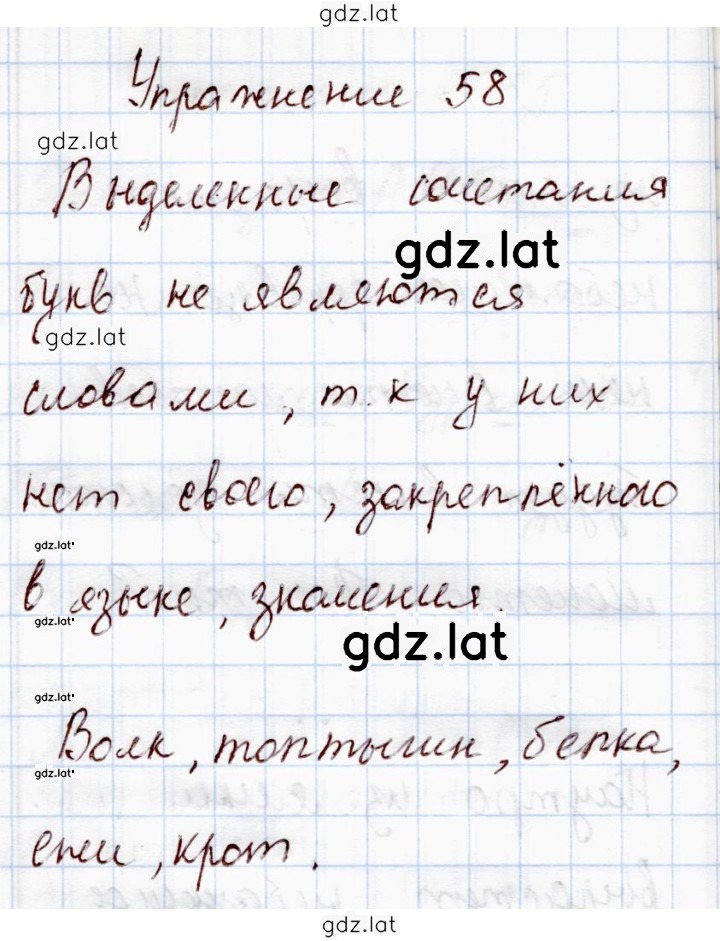 gdz.lat
Упражнение 58
gdz.lat
Выделенные сочетания
gdz.lat
букв не являются
gdz.lat
словами, т.к у них
нет своего, закреплённого
gdz.lat
в языке, знамения.
gdz.lat
gdz.lat
gdz.lat
Волк, топтыгин, белка,
gdz.lat
ежи, крот.
gdz.lat